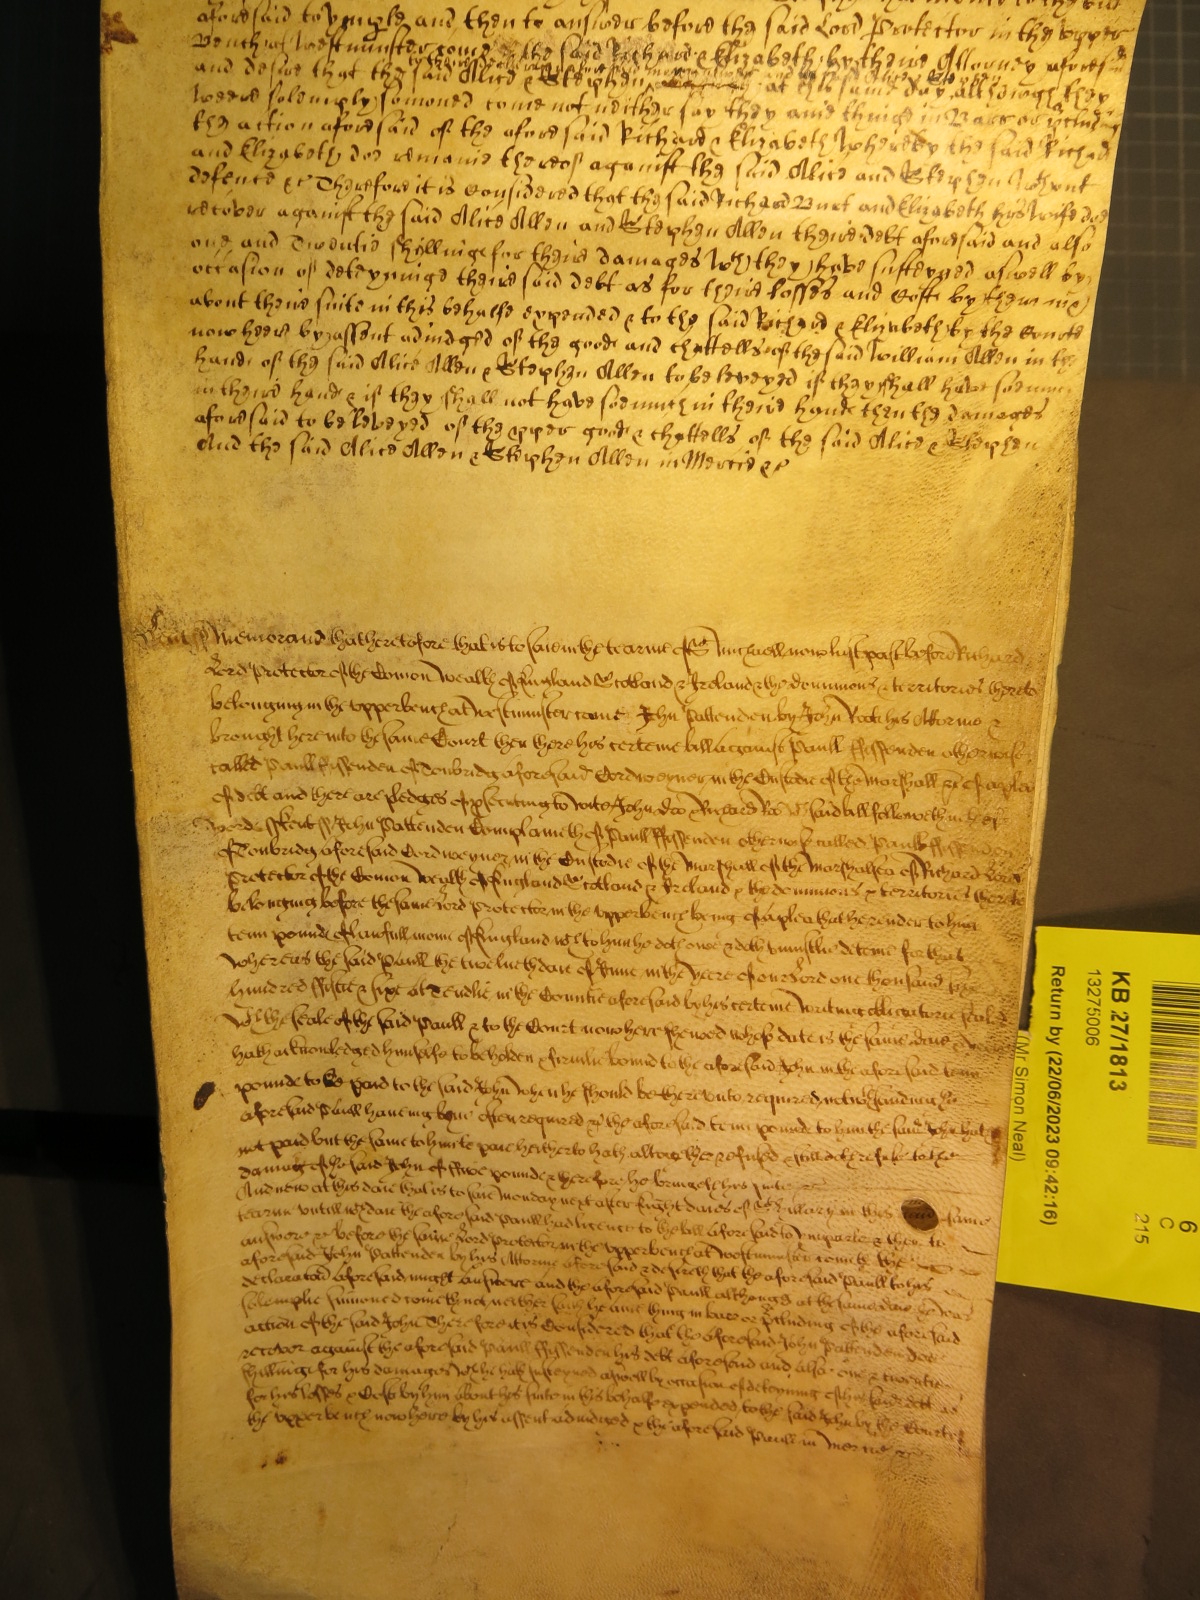 aforesaid to ymple and then to answer before the said Lord Protector in the upper
Bench at Westminster come the said Richard & Elizabeth by theire Attorney aforesaid
and desire that the said Alice & Stephen at this same day although they
weere solemply somoned come not neither say they anie thinge in Barr or
the action aforesaid of the aforesaid Richard & Elizabeth whereby the said Richard
and Elizabeth doe remaine thereof against the said Alice and Stephen wthout
defence &c Therefore it is considered that the said Richard and Elizabeth hys wife doe
recover against the said Alice Allen and Stephen Allen theire debt aforesaid and also
one and Twentie shyllinge for theire damages wch they have susteyned aswell by
occasion of deteyninge theire said debt as for theire losses and Costs by them
about theire suite in this behalfe expended & to the said Richard & Elizabeth by the Courte
now heere by assent adiudged of the goode and chattells of the said William Allen in the
hande of the said Alice Allen & Stephen Allen to be leveyed if they shall have soe much
in theire hande & if they shall not have soe much in theire hande then the damages
aforesaid to be leveyed of the pper goode & chattells of the said Alice & Stephen
And the said Alice Allen & Stephen Allen in Mercie &c
Kent ss Memorand that heretofore that is to saie in the tearme of St Michaell now last past before Richard
Lord Protector of the Comon Wealth of England Scotland & Ireland & the dominions & territories thereto
belonging in the upper bench at westminster came John Pattenden by John his Attorney &
brought here into the same Court then there his certeine bill against Paull ffissenden otherwise
called Paull ffissenden of Tonbridg aforesaid Cordweyner in the Custodie of the Marshall &c of a plea
of debt and there are pledges of psecuting to witt John Doe & Richard Roe wch said bill followeth in these
words Kent ss John Pattenden Complaineth of Paull ffissenden otherwise called Paull ffissenden
of Tonbridg aforesaid Cordweyner in the Custodie of the Marshall of the Marshalsea of Richard Lord
Protector of the Comon Wealth of England Scotland & Ireland & the dominions & territories thereto
belonging before the same Lord Protector in the upper bench being of a plea that he render to him
tenn pounde of lawfull monie of England wch to him he doth owe & doth uniustlie deteine for that
whereas the said Paull the twelueth daie of June in the yeere of our Lord one thousand six
hundred fiftie & sixe at in the Countie aforesaid by his certeine writing obligatorie sealed
wth the seale of the said Paull & to the Court now here shewed whose date is the same daie & yeere
hath acknowledged himselfe to be holden & firmlie bound to the aforesaid John in the aforesaid tenn
pounde to be paid to the said John when he should be there unto required notwithstanding the
aforesaid Paull haueing bene often required the aforesaid tenn pounde to him the said John hath
not paid but the same to him to paie hetherto hath altogether refused & still doth refuse to the
damage of the said John of ffiue pounde & therefore he bringeth his suite
And now at this daie that is to saie Monday next after eight daies of St Hillary in this same
tearme untill wch daie the aforesaid Paull had licence to the bill aforesaid to imparle & then to
answere &c before the same Lord Protector in the upper bench at westminster cometh the
aforesaid John Pattenden by his Attorney aforesaid & desireth that the aforesaid Paull to his
declaration aforesaid might answere and the aforesaid Paull although at the same daie he was
solemplie sumoned cometh not neither saith he anie thing in barr or pcluding of the aforesaid
action of the said John Therefore it is Considered that the aforesaid John Pattenden doe
recover against the aforesaid Paull ffissenden his debt aforesaid and also one & twentie
shillinge for his damages wch he hath susteyned aswell by occasion of deteyning of the said debt as
for his losses & Costs by him about his suite in this behalfe expended to the said John by the Court of
the upper bench now here by his assent adiudged & the aforesaid Paull in mercie &c
KB 27/1813
13275006
Return by (22/06/2023 09:42:16)
(Mr Simon Neal)
6
C
215